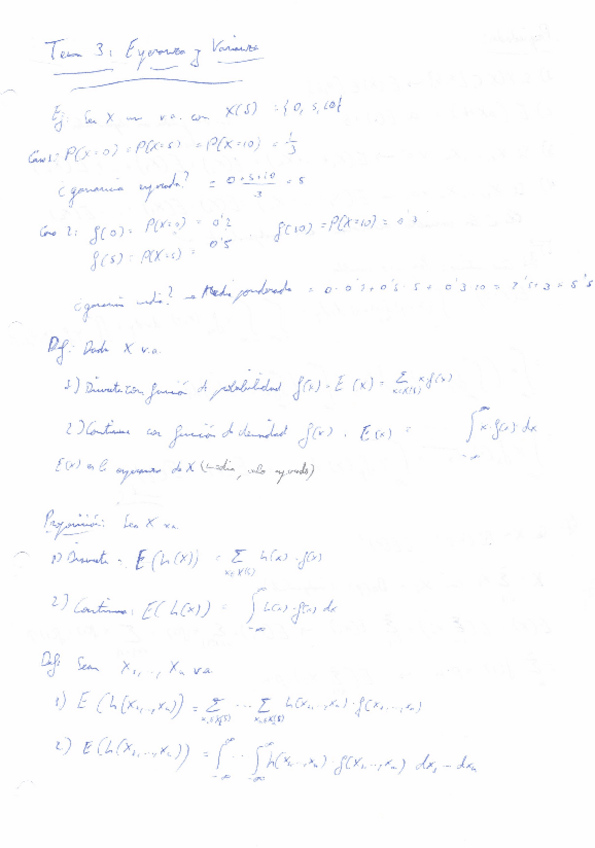 Tema 3: Esperanza y Varianza
Ej: Sea X una v.a. con X(S) = {0, 5, 10}
Caso 1: P(X=0) = P(X=5) = P(X=10) = 1/3
¿ganancia esperada? = (0+5+10)/3 = 5
Caso 2: f(0) = P(X=0) = 0'2 f(10) = P(X=10) = 0'3
f(5) = P(X=5) = 0'5
¿ganancia media? → Media ponderada = 0·0'2 + 0'5·5 + 0'3·10 = 2'5+3 = 5'5
Def: Dada X v.a.
1) Discreta con función de probabilidad f(x). E(X) = Σ_{x∈X(S)} x f(x)
2) Continua con función de densidad f(x). E(x) = ∫_{-∞}^{∞} x·f(x) dx
E(X) es la esperanza de X (media, valor esperado)
Proposición: Sea X v.a.
1) Discreta → E(h(X)) = Σ_{x∈X(S)} h(x)·f(x)
2) Continua: E(h(x)) = ∫_{-∞}^{∞} h(x)·f(x) dx
Def: Sean X₁, .., Xₙ v.a.
1) E(h(X₁,..,Xₙ)) = Σ_{x₁∈X₁(S)} ... Σ_{xₙ∈Xₙ(S)} h(x₁,..,xₙ)·f(x₁,..,xₙ)
2) E(h(X₁,..,Xₙ)) = ∫_{-∞}^{∞} ... ∫_{-∞}^{∞} h(x₁,..,xₙ)·f(x₁,..,xₙ) dx₁ – dxₙ